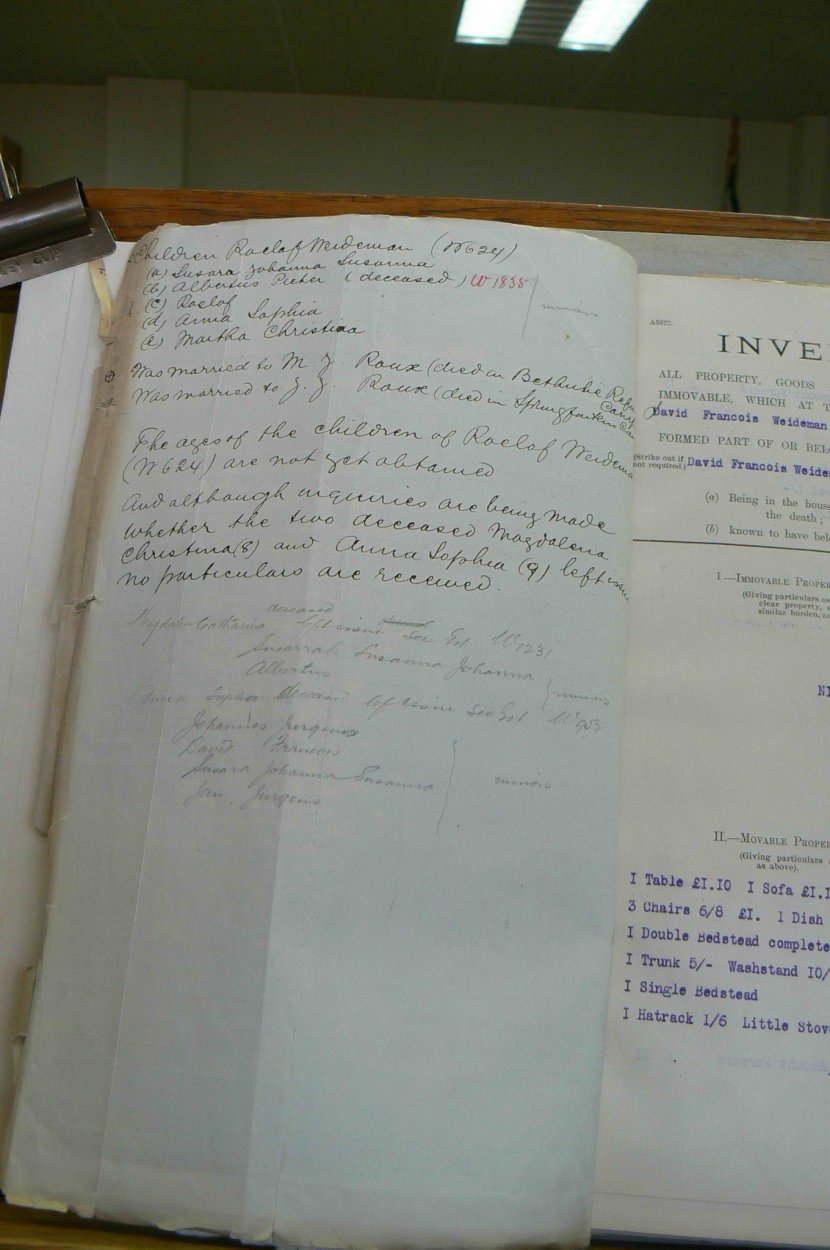 Children Roelof Weideman (W624)
(a) Susara Johanna Susanna
(b) Albertus Pieter (deceased) W 1835
(c) Roelof
(d) Anna Sophia
(e) Martha Christina
minors
Was married to M J. Roux (died in Bethulie Refu Camp
Was married to J. J. Roux (died in Springfontein Ca
The ages of the children of Roelof Weidema
(W.624) are not yet obtained
And although inquiries are being made
whether the two deceased Magdalena
Christina (8) and Anna Sophia (9) left issu
no particulars are received.
deceased
Magdalen Catharina left issue See Est W1231
Susarrah Susanna Johanna
Albertus
minors
Anna Sophia deceased left issue See Est
Johannes Jurgens
David Francois
Susara Johanna Susanna
Jan. Jurgens
minors
A5822.
INVE
ALL PROPERTY, GOODS
IMMOVABLE, WHICH AT T
David Francois Weideman
FORMED PART OF OR BEL
(Strike out if not required.) David Francois Weide
(a) Being in the hous
the death;
(b) known to have bel
I—Immovable Proper
(Giving particulars as
clear property,
similar burden, an
NI
II.—Movable Proper
(Giving particulars
as above).
I Table £I.IO I Sofa £I.I
3 Chairs 6/8 £I. I Dish
I Double Bedstead complete
I Trunk 5/- Washstand IO/
I Single Bedstead
I Hatrack I/6 Little Stov